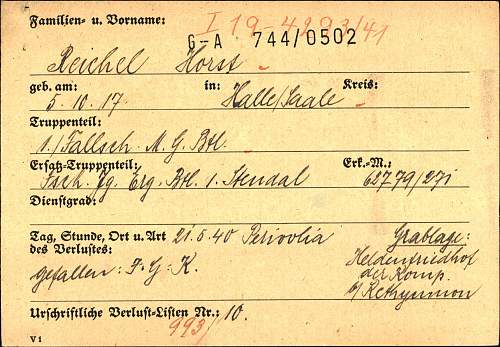 Familien- u. Vorname:
I 19-4293/41
G-A 744/0502
Reichel Horst
geb. am: in: Kreis:
5.10.17. Halle/Saale
Truppenteil:
1./Fallsch. M.G. Btl.
Ersatz-Truppenteil: Erk.-M.:
Fsch. Jg. Erg. Btl. 1. Stendal 62779/271
Dienstgrad:
Tag, Stunde, Ort u. Art 21.5.40 Perivolia Grablage:
des Verlustes: Heldenfriedhof
gefallen: I.G.K. der Komp.
b/ Rethymnon
Urschriftliche Verlust-Listen Nr.: 10.
993/
V 1